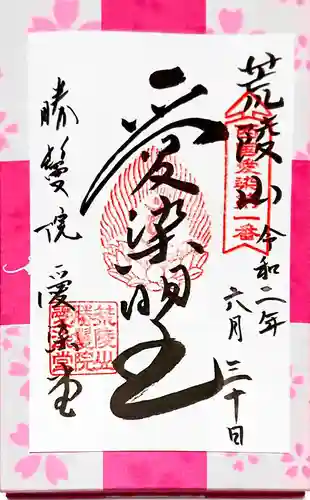 荒陵山
令和二年
六月三十日
西国愛染第一番
愛染明王
勝鬘院
愛染堂
荒陵山
勝鬘院
愛染堂